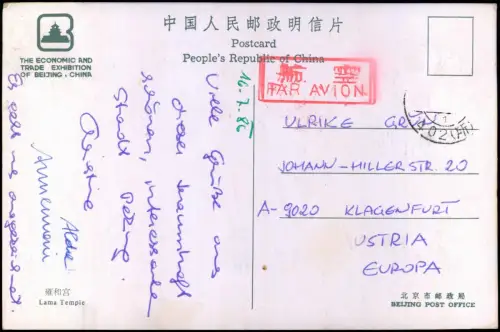 中国人民邮政明信片
Postcard
People's Republic of China
THE ECONOMIC AND
TRADE EXHIBITION
OF BEIJING · CHINA
航空
PAR AVION
16.7.86
Viele Grüße aus
dieser traumhaft
schönen, interessanten
Stadt Peking.
Christine
Annemarie
Es geht uns ausgezeichnet.
ULRIKE GR
JOHANN-HILLERSTR. 20
A-9020 KLAGENFURT
USTRIA
EUROPA
雍和宫
Lama Temple
北京市邮政局
BEIJING POST OFFICE